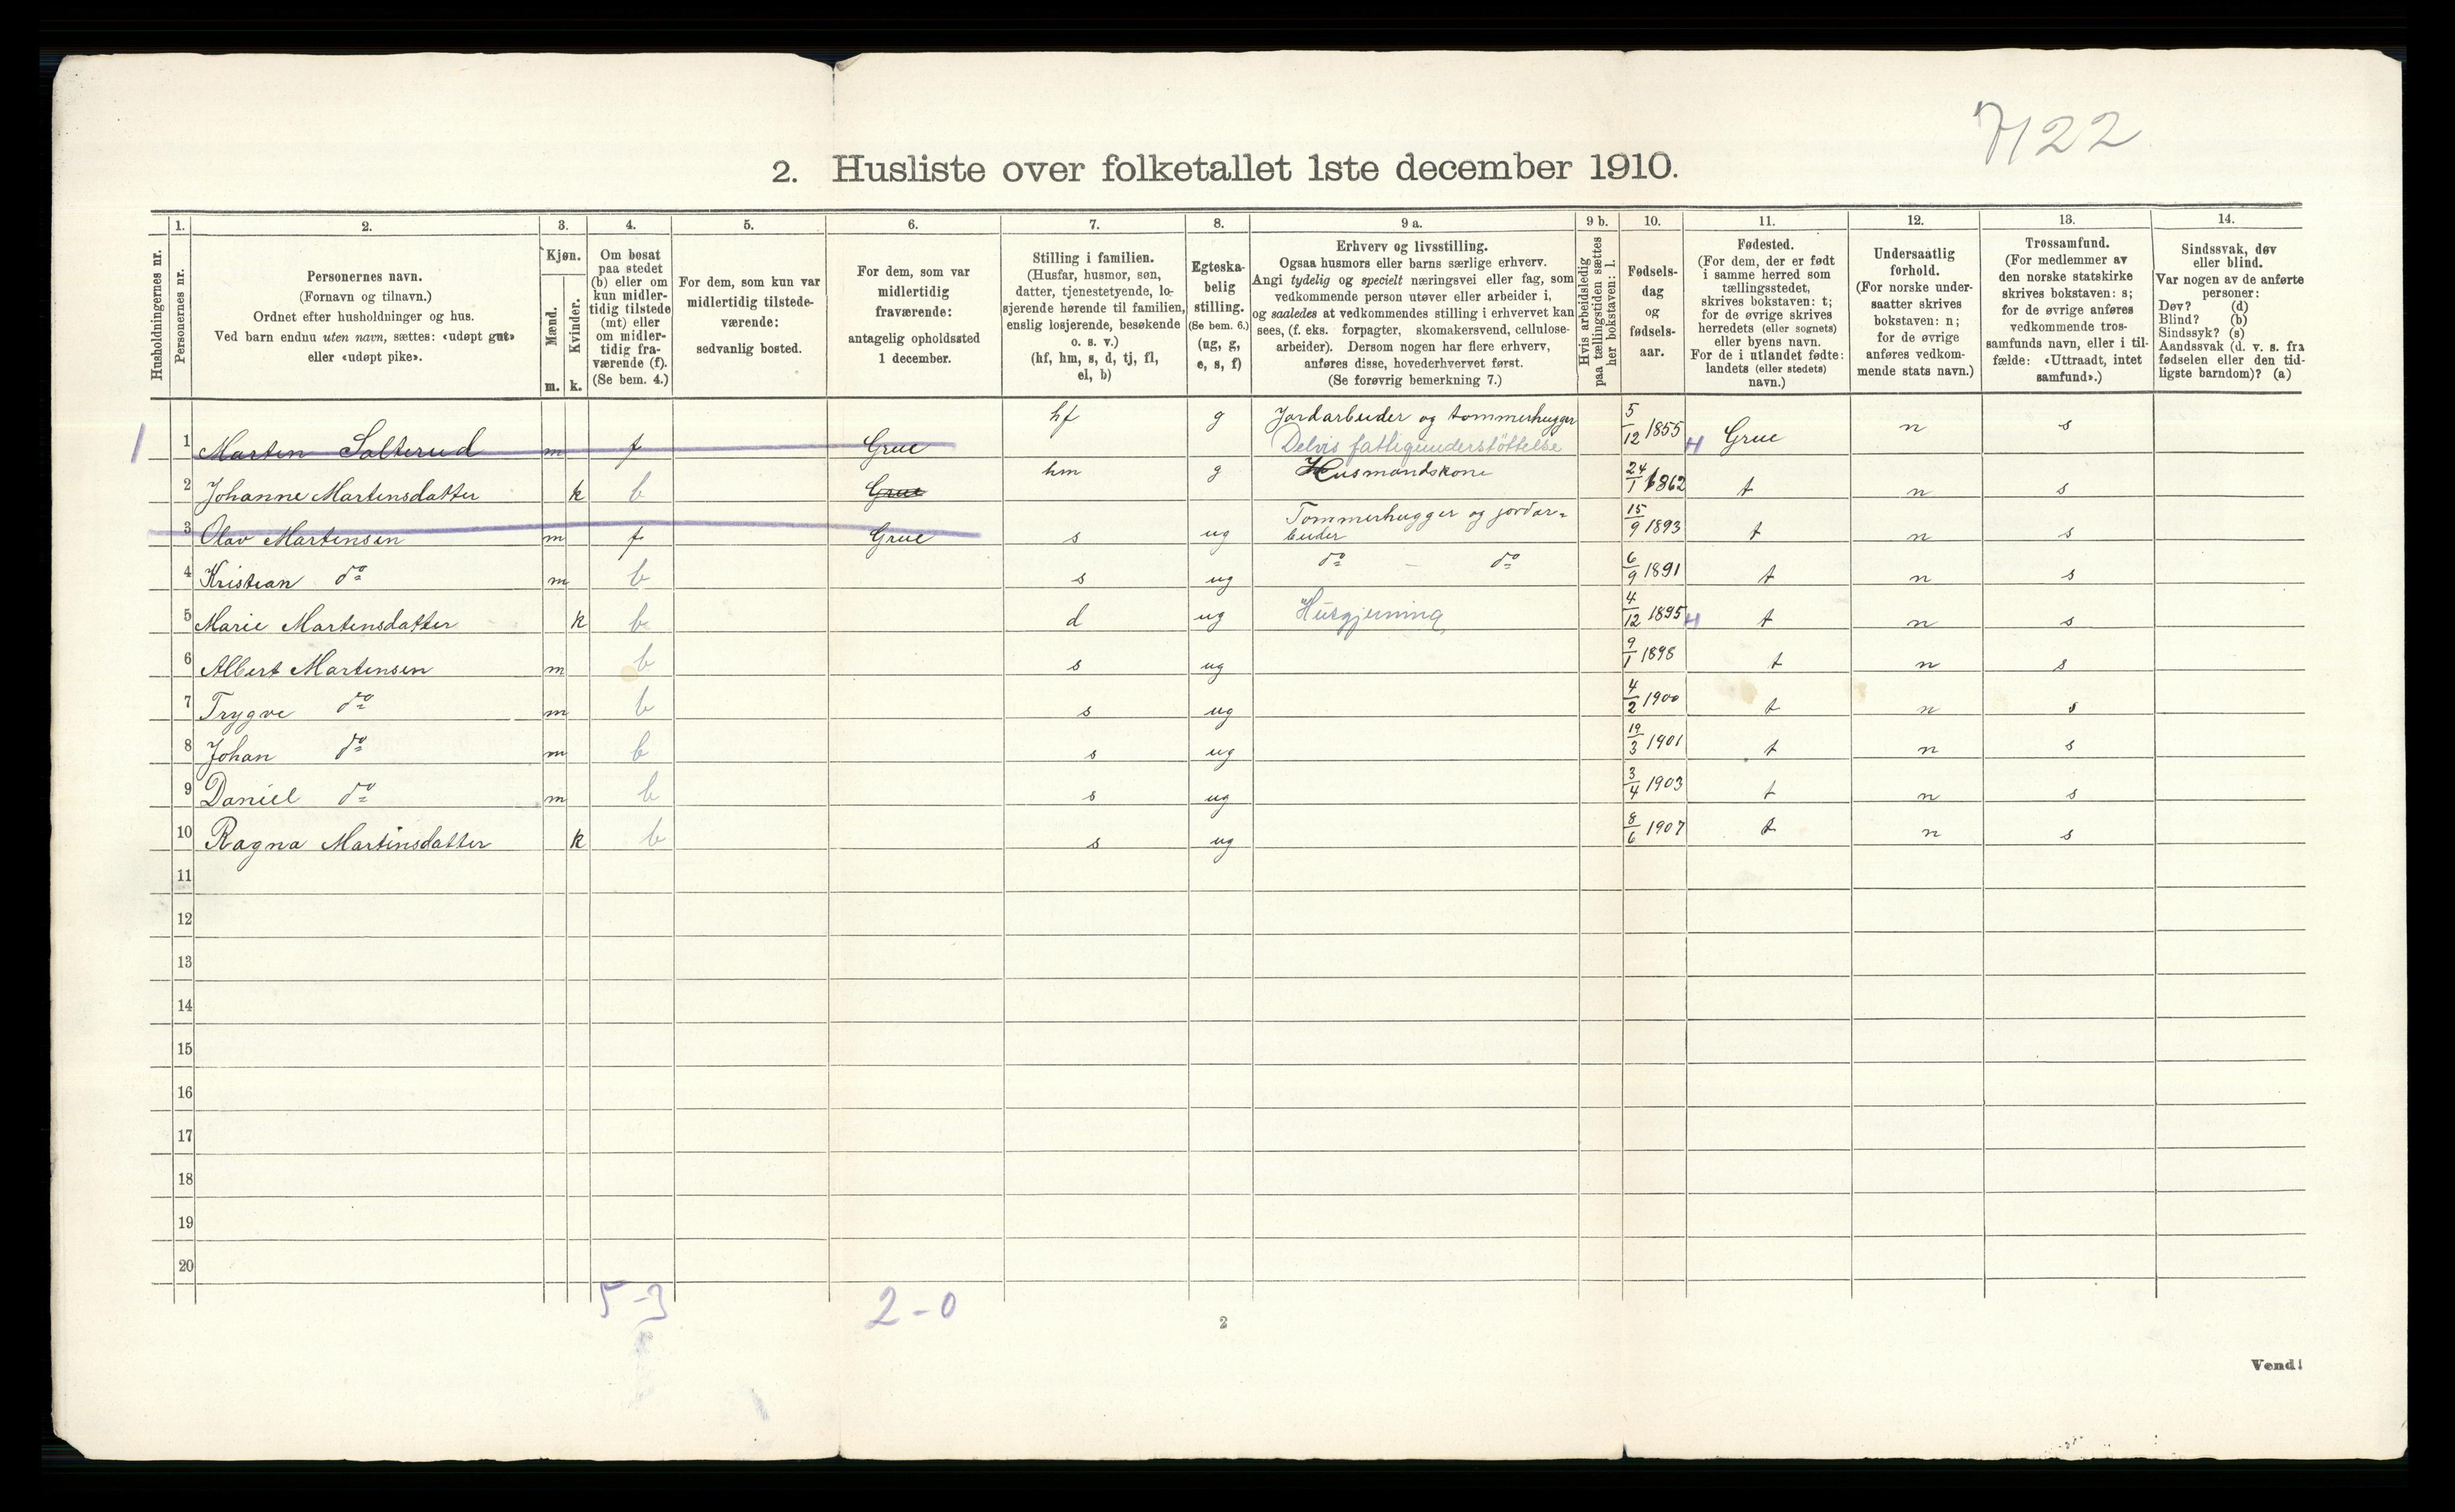 7122
2. Husliste over folketallet 1ste december 1910.
1. 2. 3. 4. 5. 6. 7. 8. 9 a. 9 b. 10. 11. 12. 13. 14.
Husholdningernes nr.
Personernes nr.
Personernes navn.
(Fornavn og tilnavn.)
Ordnet efter husholdninger og hus.
Ved barn endnu uten navn, sættes: «udøpt gut»
eller «udøpt pike».
Kjøn.
Mænd.
Kvinder.
m. k.
Om bosat
paa stedet
(b) eller om
kun midler-
tidig tilstede
(mt) eller
om midler-
tidig fra-
værende (f).
(Se bem. 4.)
For dem, som kun var
midlertidig tilstede-
værende:
sedvanlig bosted.
For dem, som var
midlertidig
fraværende:
antagelig opholdssted
1 december.
Stilling i familien.
(Husfar, husmor, søn,
datter, tjenestetyende, lo-
sjerende hørende til familien,
enslig losjerende, besøkende
o. s. v.)
(hf, hm, s, d, tj, fl,
el, b)
Egteska-
belig
stilling.
(Se bem. 6.)
(ug, g,
e, s, f)
Erhverv og livsstilling.
Ogsaa husmors eller barns særlige erhverv.
Angi tydelig og specielt næringsvei eller fag, som
vedkommende person utøver eller arbeider i,
og saaledes at vedkommendes stilling i erhvervet kan
sees, (f. eks. forpagter, skomakersvend, cellulose-
arbeider). Dersom nogen har flere erhverv,
anføres disse, hovederhvervet først.
(Se forøvrig bemerkning 7.)
Hvis arbeidsledig
paa tællingstiden sættes
her bokstaven: l.
Fødsels-
dag
og
fødsels-
aar.
Fødested.
(For dem, der er født
i samme herred som
tællingsstedet,
skrives bokstaven: t;
for de øvrige skrives
herredets (eller sognets)
eller byens navn.
For de i utlandet fødte:
landets (eller stedets)
navn.)
Undersaatlig
forhold.
(For norske under-
saatter skrives
bokstaven: n;
for de øvrige
anføres vedkom-
mende stats navn.)
Trossamfund.
(For medlemmer av
den norske statskirke
skrives bokstaven: s;
for de øvrige anføres
vedkommende tros-
samfunds navn, eller i til-
fælde: «Uttraadt, intet
samfund».)
Sindssvak, døv
eller blind.
Var nogen av de anførte
personer:
Døv? (d)
Blind? (b)
Sindssyk? (s)
Aandssvak (d. v. s. fra
fødselen eller den tid-
ligste barndom)? (a)
1 1 Marten Salterud m f Grue hf g Jordarbeider og tømmerhugger 5/12 1855 Grue n s
Delvis fattigunderstöttelse
2 Johanne Martensdatter k b Grue hm g Husmandskone 24/1 1862 t n s
3 Olav Martensen m f Grue s ug Tommerhugger og jordar=
beider 15/9 1893 t n s
4 Kristian do m b s ug do - do 6/9 1891 t n s
5 Marie Martensdatter k b d ug Husgjerning 4/12 1895 t n s
6 Albert Martensen m b s ug 9/1 1898 t n s
7 Trygve do m b s ug 4/2 1900 t n s
8 Johan do m b s ug 19/3 1901 t n s
9 Daniel do m b s ug 3/4 1903 t n s
10 Ragna Martinsdatter k b s ug 8/6 1907 t n s
11
12
13
14
15
16
17
18
19
20
5-3 2-0
2
Vend!